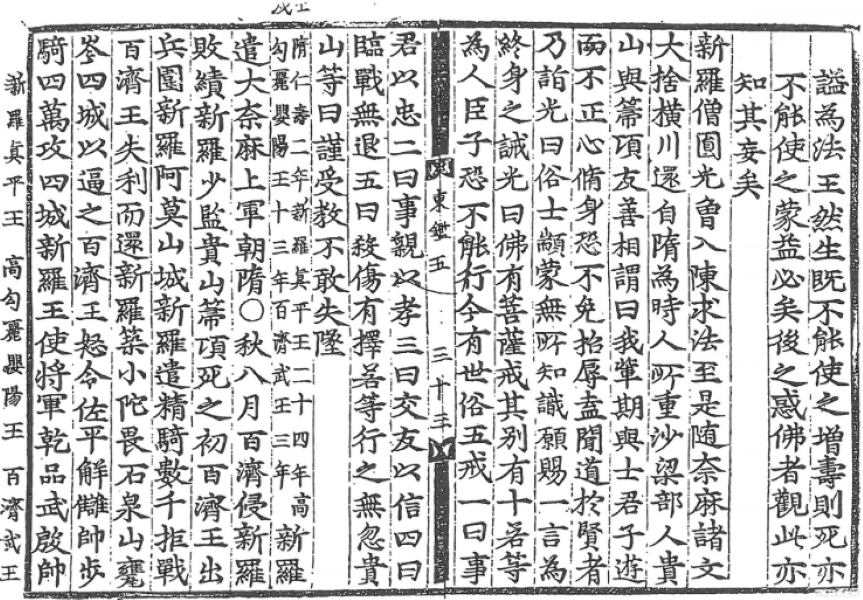 諡為法王然生既不能使之增壽則死亦
不能使之蒙益必矣後之惑佛者觀此亦
知其妄矣
新羅僧圓光曾入陳求法至是随奈麻諸文
大捨橫川還自隋為時人所重沙梁部人貴
山與箒項友善相謂曰我軰期與士君子遊
而不正心脩身恐不免招辱盍聞道於賢者
乃詣光曰俗士顓蒙無所知識願賜一言為
終身之誡光曰佛有菩薩戒其别有十若等
為人臣子恐不能行今有世俗五戒一曰事
東鑑五 三十三
君以忠二曰事親以孝三曰交友以信四曰
臨戰無退五曰殺傷有擇若等行之無忽貴
山等曰謹受教不敢失墜
隋仁壽二年新羅眞平王二十四年高
勾麗嬰陽王十三年百濟武王三年
新羅
遣大奈麻上軍朝隋○秋八月百濟侵新羅
敗績新羅少監貴山箒項死之初百濟王出
兵圍新羅阿莫山城新羅遣精騎數千拒戰
百濟王失利而還新羅築小陀畏石泉山甕
岑四城以逼之百濟王怒令佐平解讎帥步
騎四萬攻四城新羅王使將軍乾品武殷帥
新羅眞平王 高勾麗嬰陽王 百濟武王